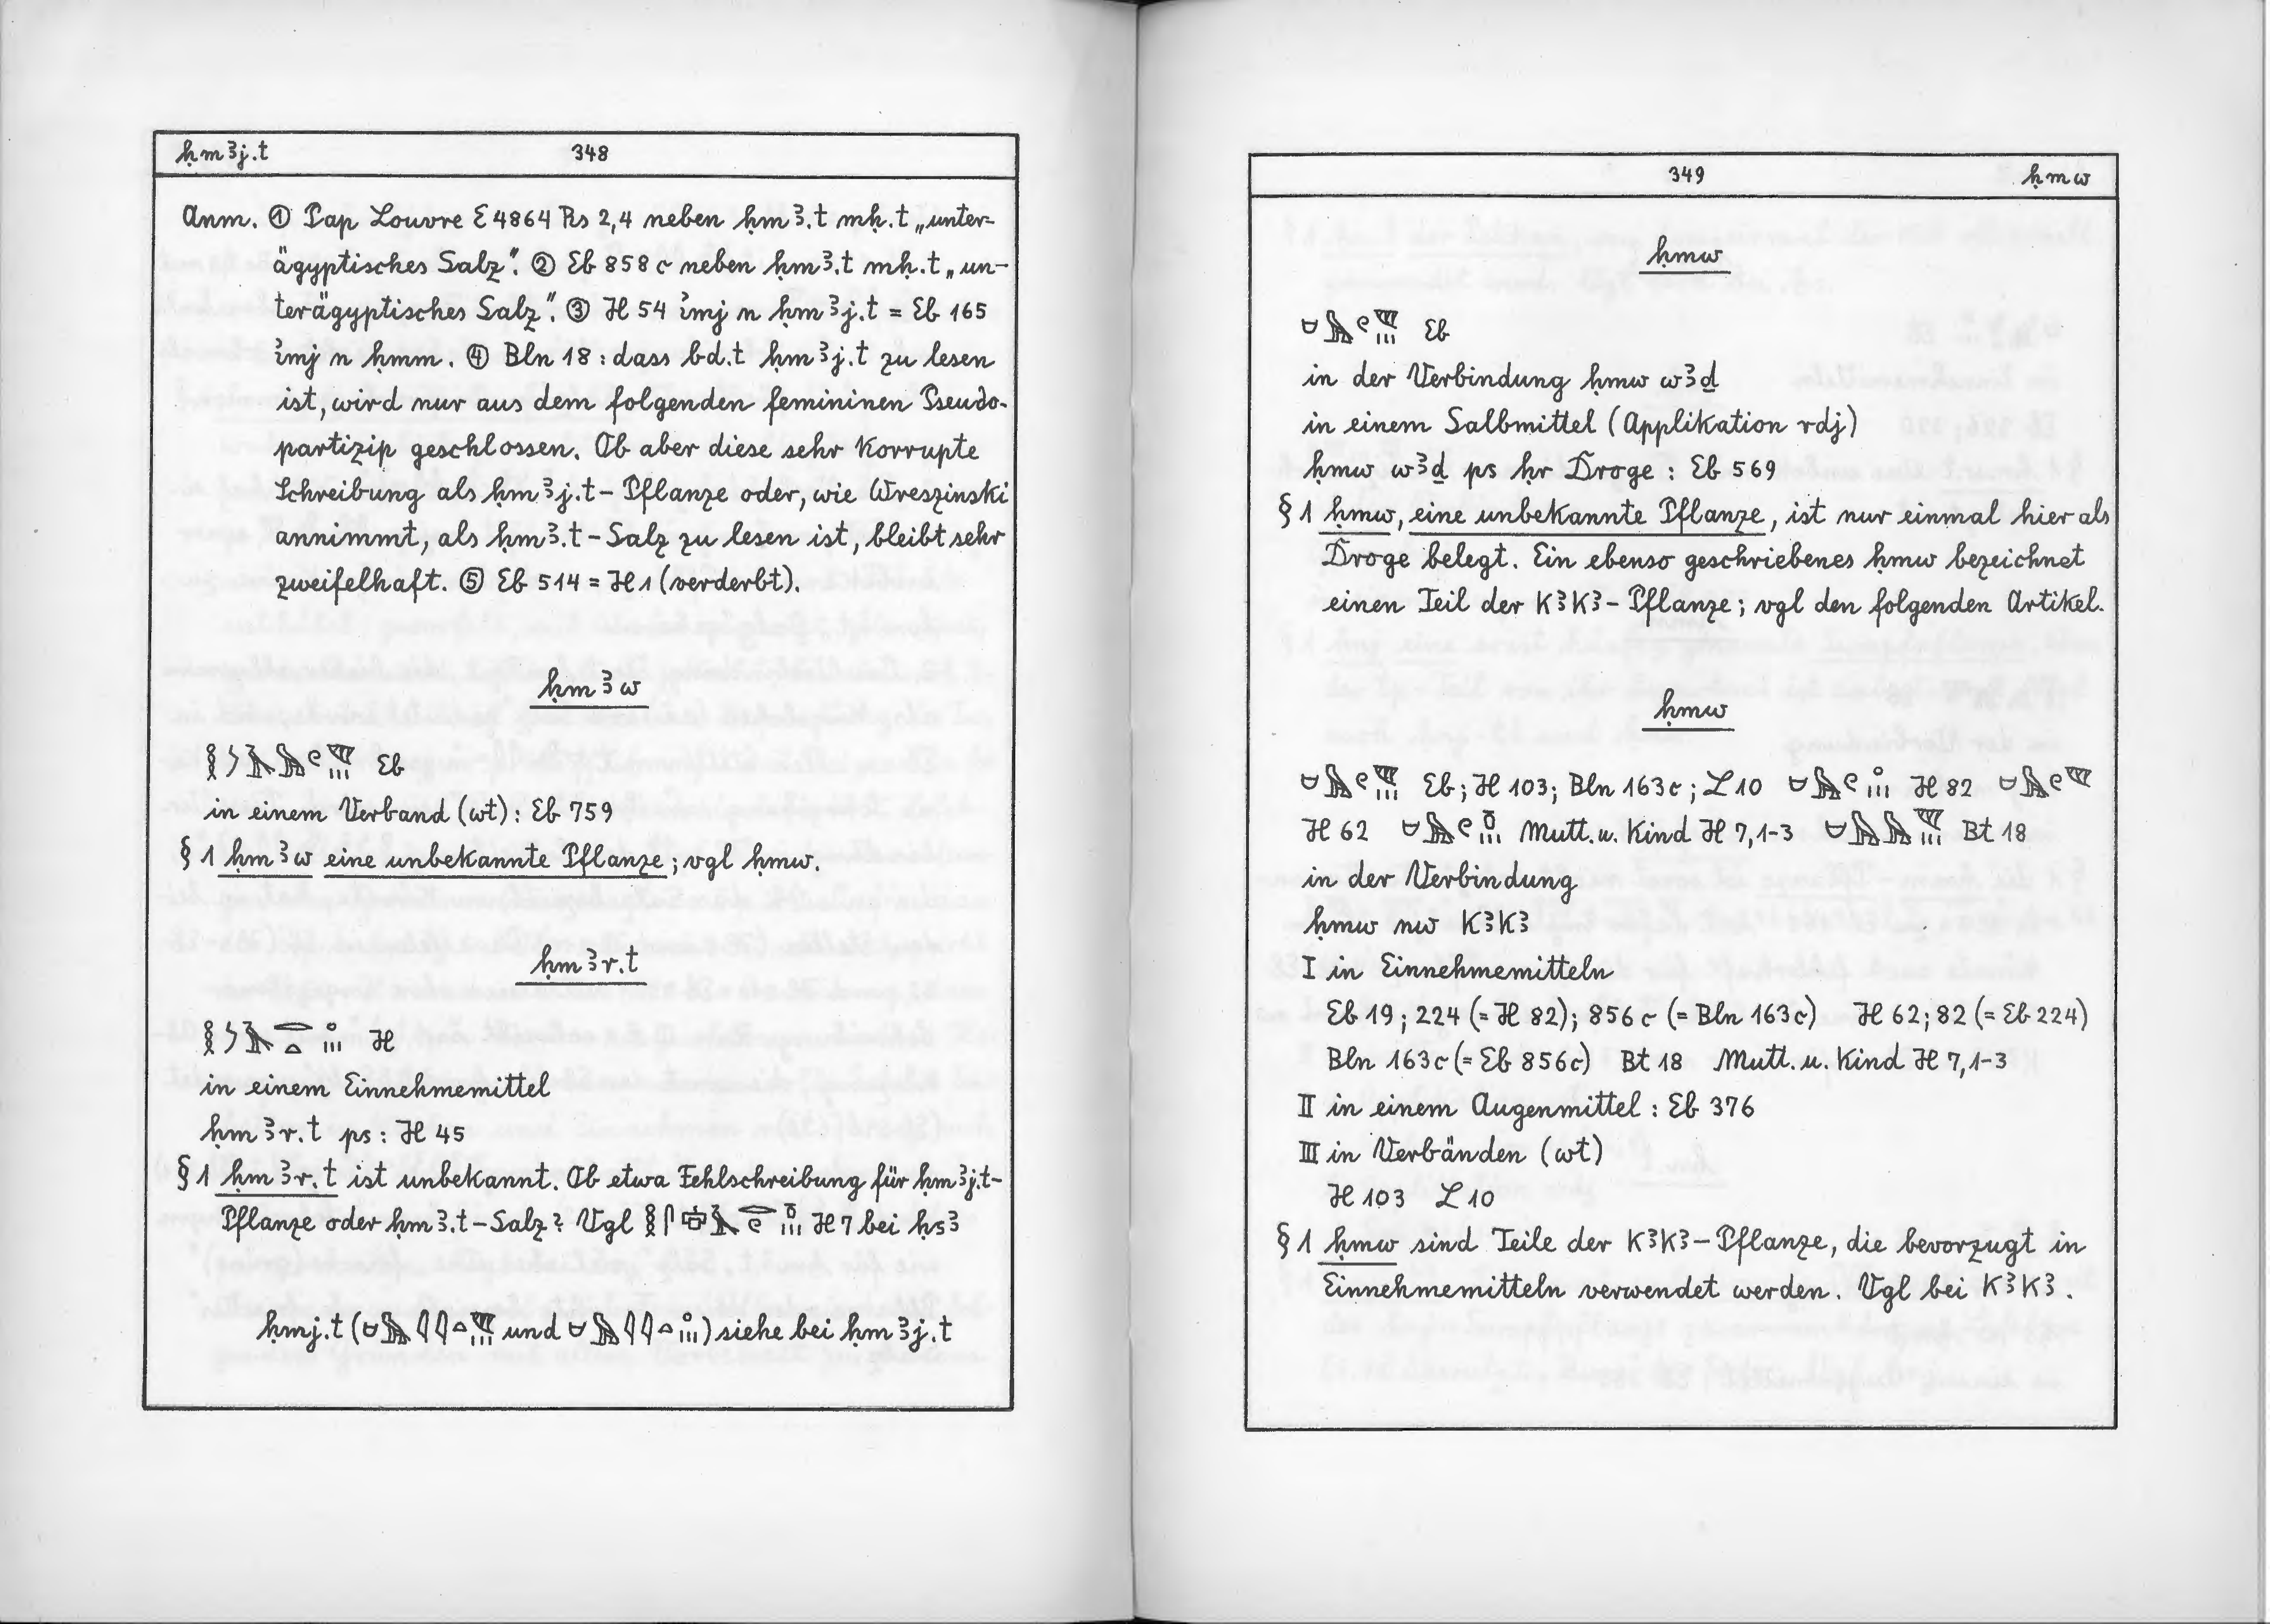 ḥmꜣj.t 348
Anm. ① Pap Louvre E 4864 Rs 2,4 neben ḥmꜣ.t mḥ.t „unter-
ägyptisches Salz". ② Eb 858 c neben ḥmꜣ.t mḥ.t „un-
terägyptisches Salz". ③ H 54 ỉmj n ḥmꜣj.t = Eb 165
ỉmj n ḥmm. ④ Bln 18 : dass bd.t ḥmꜣj.t zu lesen
ist, wird nur aus dem folgenden femininen Pseudo-
partizip geschlossen. Ob aber diese sehr korrupte
Schreibung als ḥmꜣj.t-Pflanze oder, wie Wreszinski
annimmt, als ḥmꜣ.t-Salz zu lesen ist, bleibt sehr
zweifelhaft. ⑤ Eb 514 = H 1 (verderbt).
ḥmꜣw
Eb
in einem Verband (wt): Eb 759
§ 1 ḥmꜣw eine unbekannte Pflanze; vgl ḥmw.
ḥmꜣr.t
H
in einem Einnehmemittel
ḥmꜣr.t ps : H 45
§ 1 ḥmꜣr.t ist unbekannt. Ob etwa Fehlschreibung für ḥmꜣj.t-
Pflanze oder ḥmꜣ.t-Salz? Vgl H 7 bei ḥsꜣ
ḥmj.t ( und ) siehe bei ḥmꜣj.t
349 ḥmw
ḥmw
Eb
in der Verbindung ḥmw wꜣḏ
in einem Salbmittel (Applikation rdj)
ḥmw wꜣḏ ps ḥr Droge : Eb 569
§ 1 ḥmw, eine unbekannte Pflanze, ist nur einmal hier als
Droge belegt. Ein ebenso geschriebenes ḥmw bezeichnet
einen Teil der kꜣkꜣ-Pflanze; vgl den folgenden Artikel.
ḥmw
Eb; H 103; Bln 163c; L 10 H 82
H 62 Mutt. u. Kind H 7,1-3 Bt 18
in der Verbindung
ḥmw nw kꜣkꜣ
I in Einnehmemitteln
Eb 19; 224 (= H 82); 856 c (= Bln 163c) H 62; 82 (= Eb 224)
Bln 163c (= Eb 856c) Bt 18 Mutt. u. Kind H 7,1-3
II in einem Augenmittel : Eb 376
III in Verbänden (wt)
H 103 L 10
§ 1 ḥmw sind Teile der kꜣkꜣ-Pflanze, die bevorzugt in
Einnehmemitteln verwendet werden. Vgl bei kꜣkꜣ.